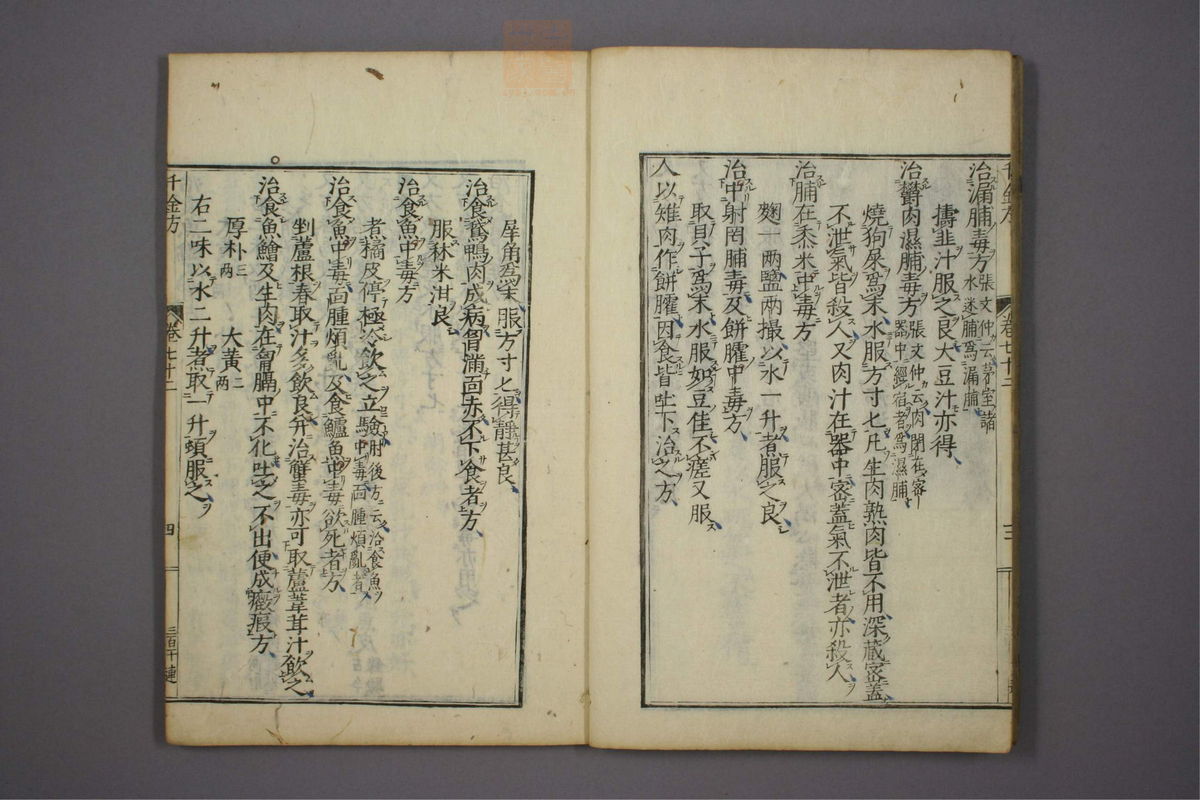 千金方
卷七十二
三
治漏脯毒方張文仲云茅室諸水迷脯爲漏脯
擣韭汁服之良大豆汁亦得
治鬱肉濕脯毒方張文仲云肉閉在密器中經宿者爲濕脯
燒狗屎爲末水服方寸匕凡生肉熟肉皆不用深藏密蓋
不泄氣皆殺人又肉汁在器中密蓋氣不泄者亦殺人
治脯在黍米中毒方
麴一兩鹽兩撮以水一升煮服之良
治中射罔脯毒及餅臛中毒方
取貝子爲末水服如豆佳不瘥又服
人以雉肉作餅臛因食皆吐下治之方
犀角爲末服方寸匕得靜甚良
治食鵞鴨肉成病胷滿面赤不下食者方
服秫米泔良
治食魚中毒方
煮橘皮停極冷飲之立驗肘後方云治食魚中毒面腫煩亂者
治食魚中毒面腫煩亂及食鱸魚中毒欲死者方
剉蘆根舂取汁多飲良并治蟹毒亦可取蘆葦茸汁飲之
治食魚鱠及生肉在胷膈中不化吐之不出便成癥瘕方
厚朴三兩 大黃二兩
右二味以水二升煮取一升頓服之
千金方
卷七十二
四